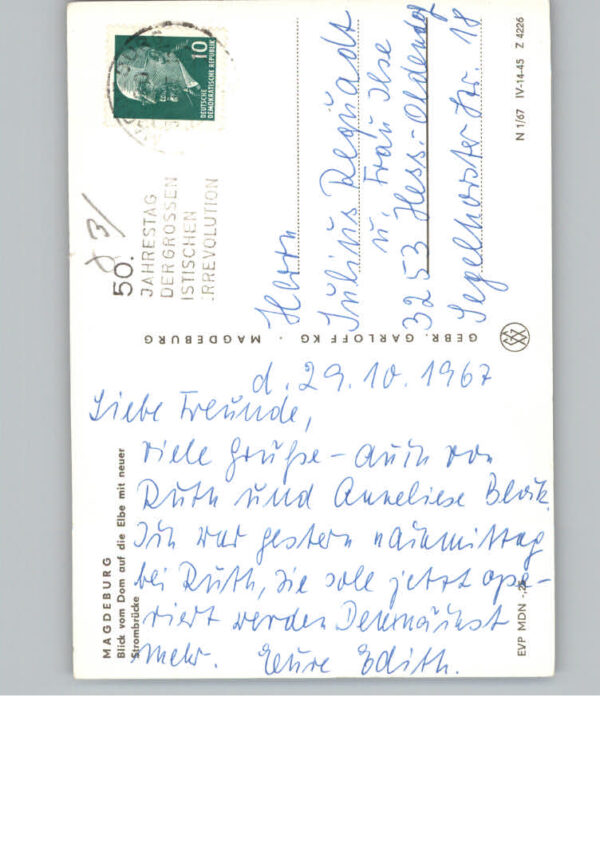 MAGDEBURG
Blick vom Dom auf die Elbe mit neuer
Strombrücke
d. 29.10.1967
Liebe Freunde,
viele Grüße - auch von
Ruth und Anneliese
Ich war gestern nachmittag
bei Ruth, sie solle jetzt ope-
riert werden Demnächst
mehr. Eure Edith.
GEBR. GARLOFF KG · MAGDEBURG
50.
JAHRESTAG
DER GROSSEN
ISTISCHEN
RREVOLUTION
10
DEUTSCHE
DEMOKRATISCHE REPUBLIK
Herrn
Julius Requadt
u. Frau Ilse
3253 Hess.-Oldendorf
Segelhorster Str. 18
EVP MDN
N 1/67 IV-14-45 Z 4226